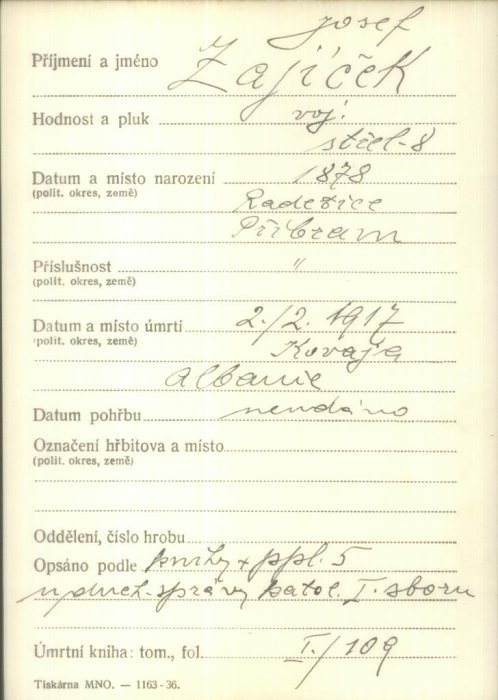 Josef
Příjmení a jméno Zajíček
Hodnost a pluk voj.
střel-8
Datum a místo narození 1878
(polit. okres, země) Radetice
Příbram
Příslušnost "
(polit. okres, země)
Datum a místo úmrtí 2./2. 1917
(polit. okres, země) Kovaja
Albanie
Datum pohřbu neudáno
Označení hřbitova a místo
(polit. okres, země)
Oddělení, číslo hrobu
Opsáno podle knihy ppl. 5
duch. správy katol. I. sboru
Úmrtní kniha: tom., fol. I./109
Tiskárna MNO. — 1163-36.